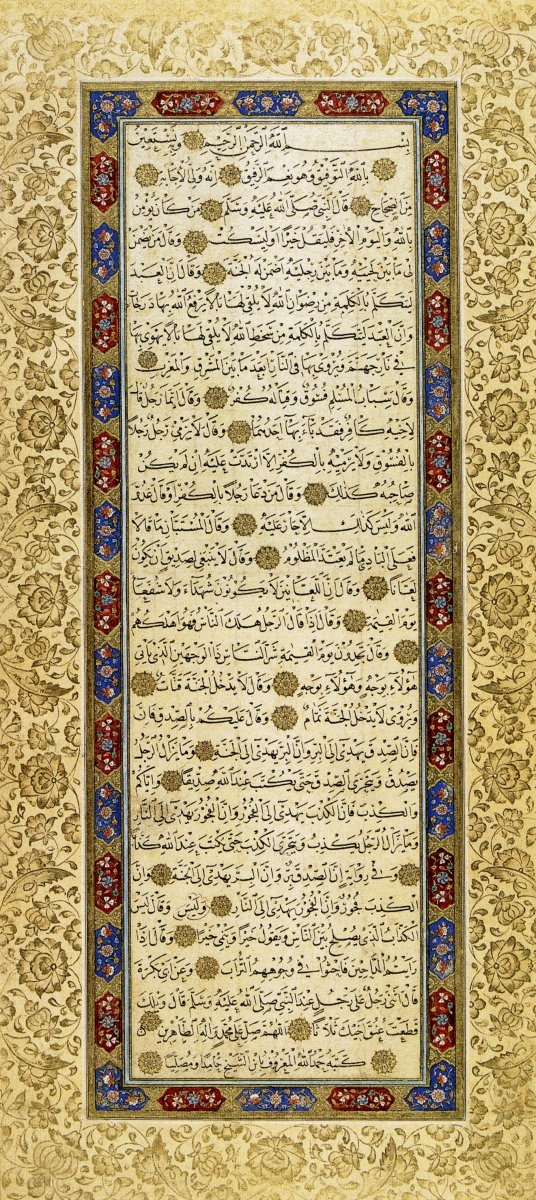 بِسْمِ اللهِ الرَّحْمٰنِ الرَّحِيْمِ وبه نستعين
بالله التوفيق وهو نعم الرفيق انه ولى الاجابة
من الصحاح قال النبى صلى الله عليه وسلم من كان يؤمن
بالله واليوم الآخر فليقل خيرا او ليسكت وقال من يضمن
لى ما بين لحييه وما بين رجليه اضمن له الجنة وقال ان العبد
ليتكلم بالكلمة من رضوان الله لا يلقى لها بالا يرفع الله بها درجات
وان العبد ليتكلم بالكلمة من سخط الله لا يلقى لها بالا يهوى بها
فى نار جهنم ويروى يهوى بها فى النار ابعد ما بين المشرق والمغرب
وقال سباب المسلم فسوق وقتاله كفر وقال ايما رجل قال
لاخيه كافر فقد باء بها احدهما وقال لا يرمى رجل رجلا
بالفسوق ولا يرميه بالكفر الا ارتدت عليه ان لم يكن
صاحبه كذلك وقال من دعا رجلا بالكفر او قال عدو
الله وليس كذلك الا حار عليه وقال المستبان ما قالا
فعلى البادى ما لم يعتد المظلوم وقال لا ينبغى لصديق ان يكون
لعانا وقال ان اللعانين لا يكونون شهداء ولا شفعاء
يوم القيمة وقال اذا قال الرجل هلك الناس فهو اهلكهم
وقال تجدون يوم القيمة شر الناس ذا الوجهين الذى ياتى
هؤلاء بوجه وهؤلاء بوجه وقال لا يدخل الجنة قتات
ويروى لا يدخل الجنة نمام وقال عليكم بالصدق فان
فان الصدق يهدى الى البر وان البر يهدى الى الجنة وما يزال الرجل
يصدق ويتحرى الصدق حتى يكتب عند الله صديقا واياكم
والكذب فان الكذب يهدى الى الفجور وان الفجور يهدى الى النار
وما يزال الرجل يكذب ويتحرى الكذب حتى يكتب عند الله كذابا
وفى رواية ان الصدق بر وان البر يهدى الى الجنة وان
الكذب فجور وان الفجور يهدى الى النار وليس وقال ليس
الكذاب الذى يصلح بين الناس ويقول خيرا وينمى خيرا وقال اذا
رايتم المداحين فاحثوا فى وجوههم التراب وعن ابى بكرة
قال اثنى رجل على رجل عند النبى صلى الله عليه وسلم قال ويلك
قطعت عنق اخيك ثلاثا اللهم صل على محمد وآله الطاهرين
كتبه حمد الله المعروف بابن الشيخ حامدا ومصليا